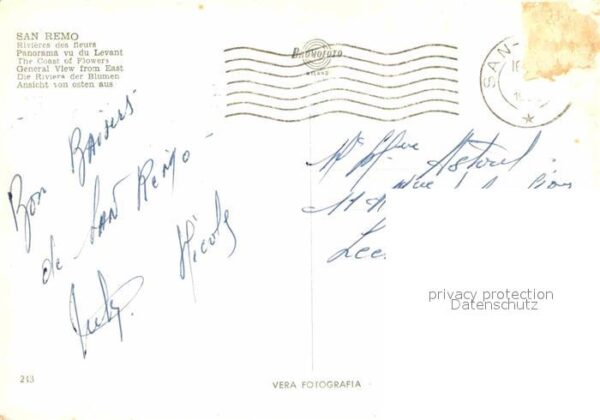 SAN REMO
Rivières des fleurs
Panorama vu du Levant
The Coast of Flowers
General View from East
Die Riviera der Blumen
Ansicht von osten aus
BROMOFOTO
MILANO
SAN-
Bon Baisers
de SAN Remo
Nicole
privacy protection
Datenschutz
213
VERA FOTOGRAFIA